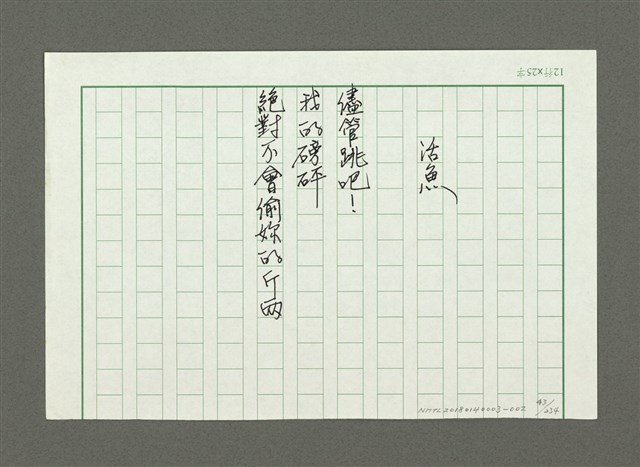 12行×25字
活魚
儘管跳吧！
我的磅砰
絕對不會偷妳的斤兩
NMTL20180140003-002
43/234